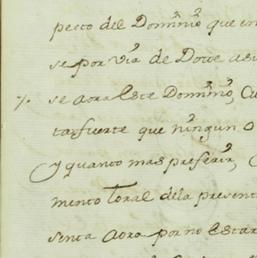 pecto del Domin.º que en
se por via de Dote
se aora este Domin.º, Cu
tar fuerte que ningun o
y quanto mas preferir,
mento Toral dela present
senta aora por no estar